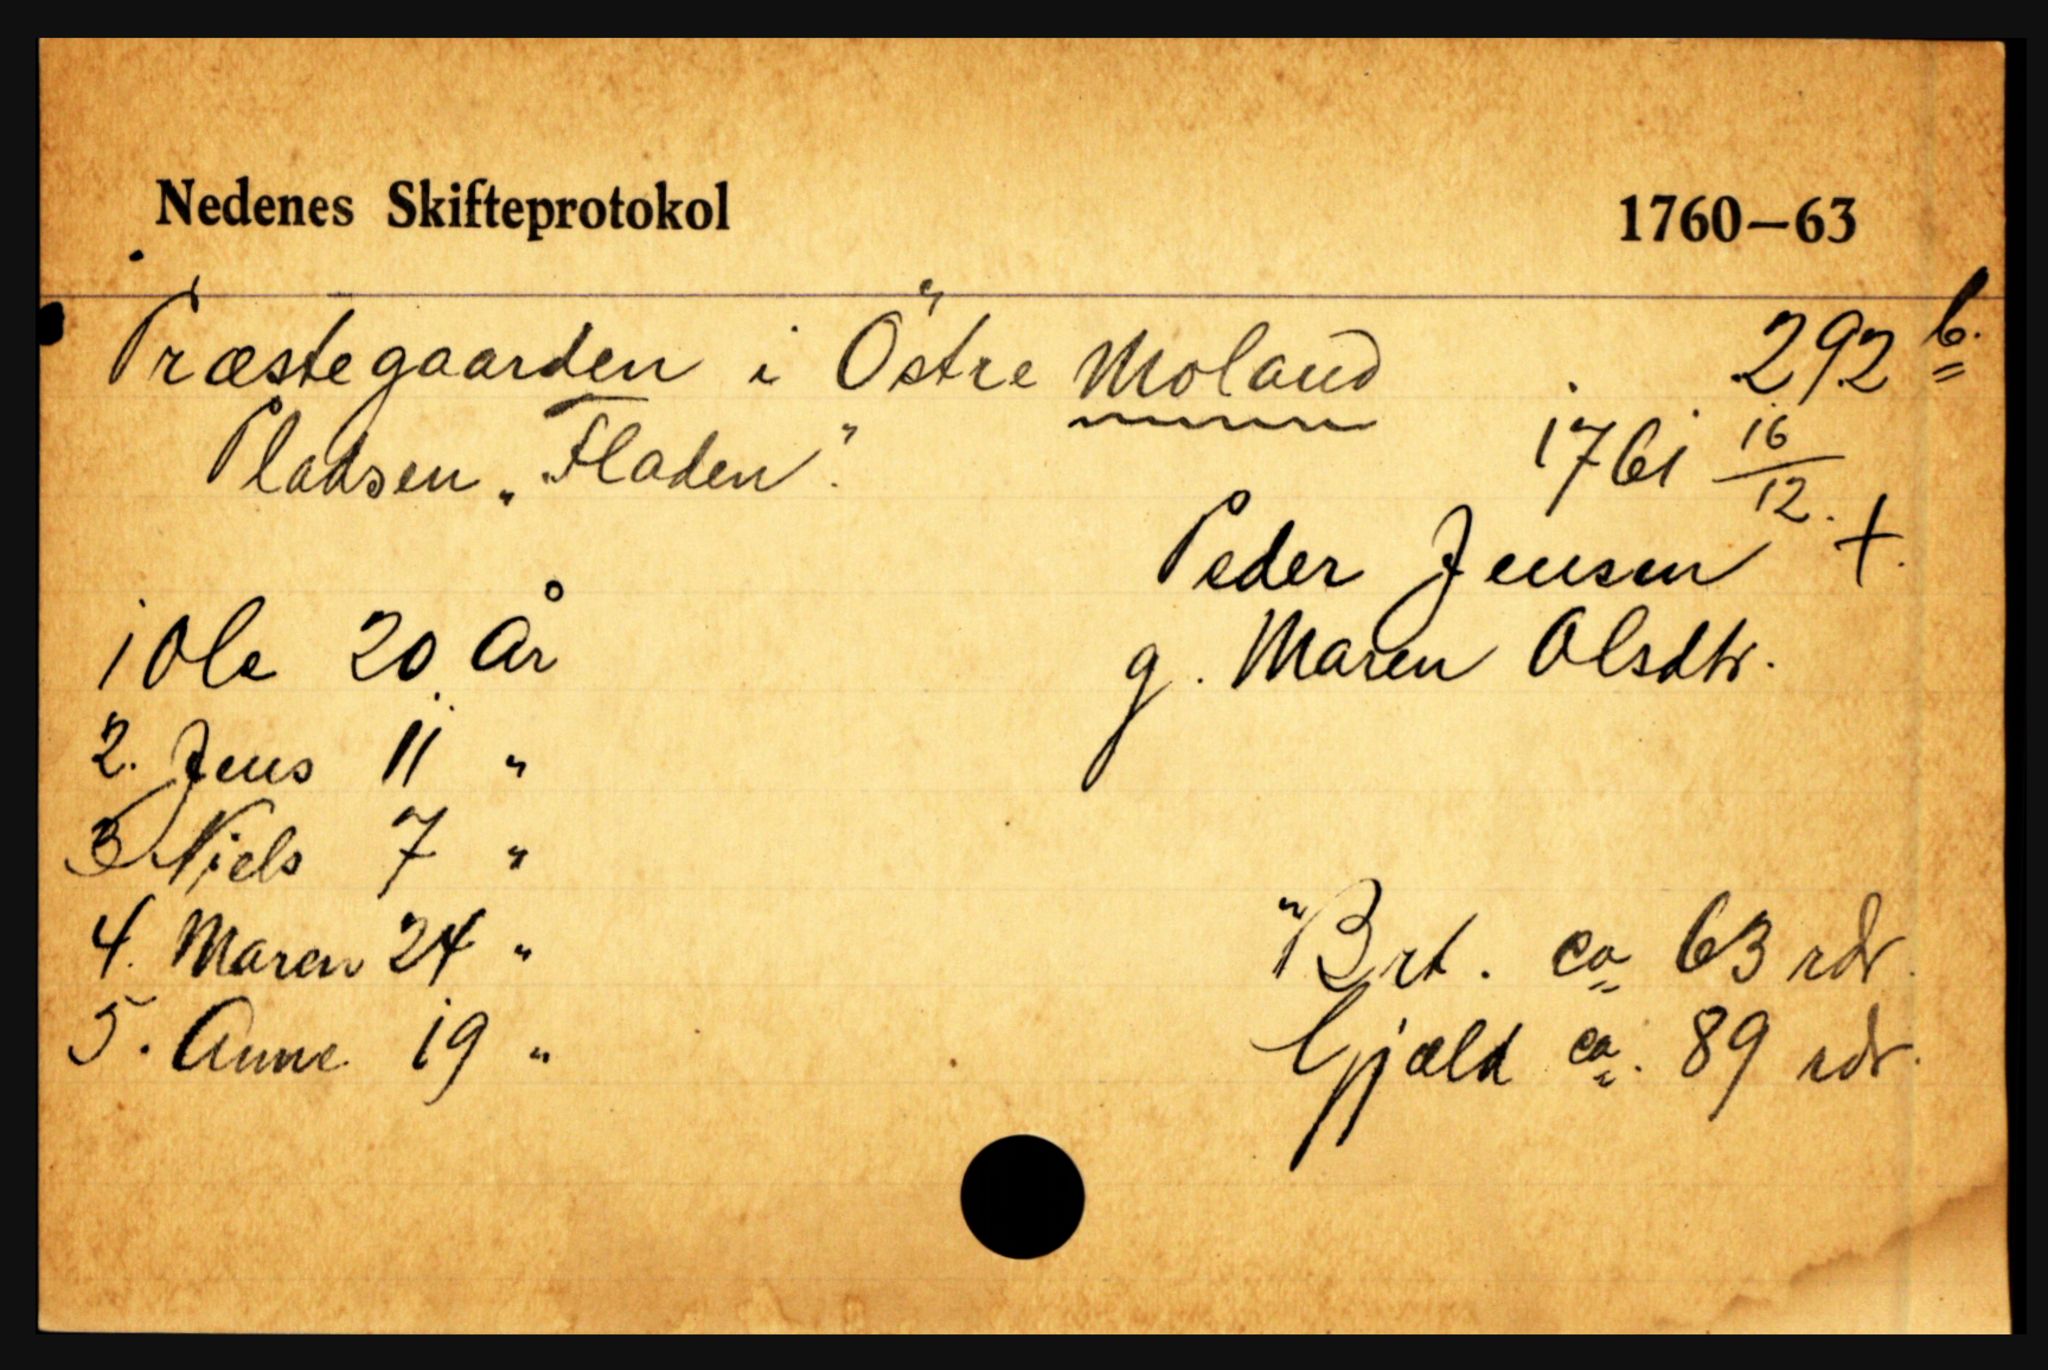 Nedenes Skifteprotokol 1760–63
Præstegaarden i Östre Moland 292 b.
Pladsen „Fladen". 1761 16/12.
Peder Jensen +.
1 Ole 20 År g. Maren Olsdtr.
2. Jens 11 "
3 Niels 7 "
4. Maren 24 " Brt. ca 63 rdr.
5. Anne 19 " Gjæld ca. 89 rdr.